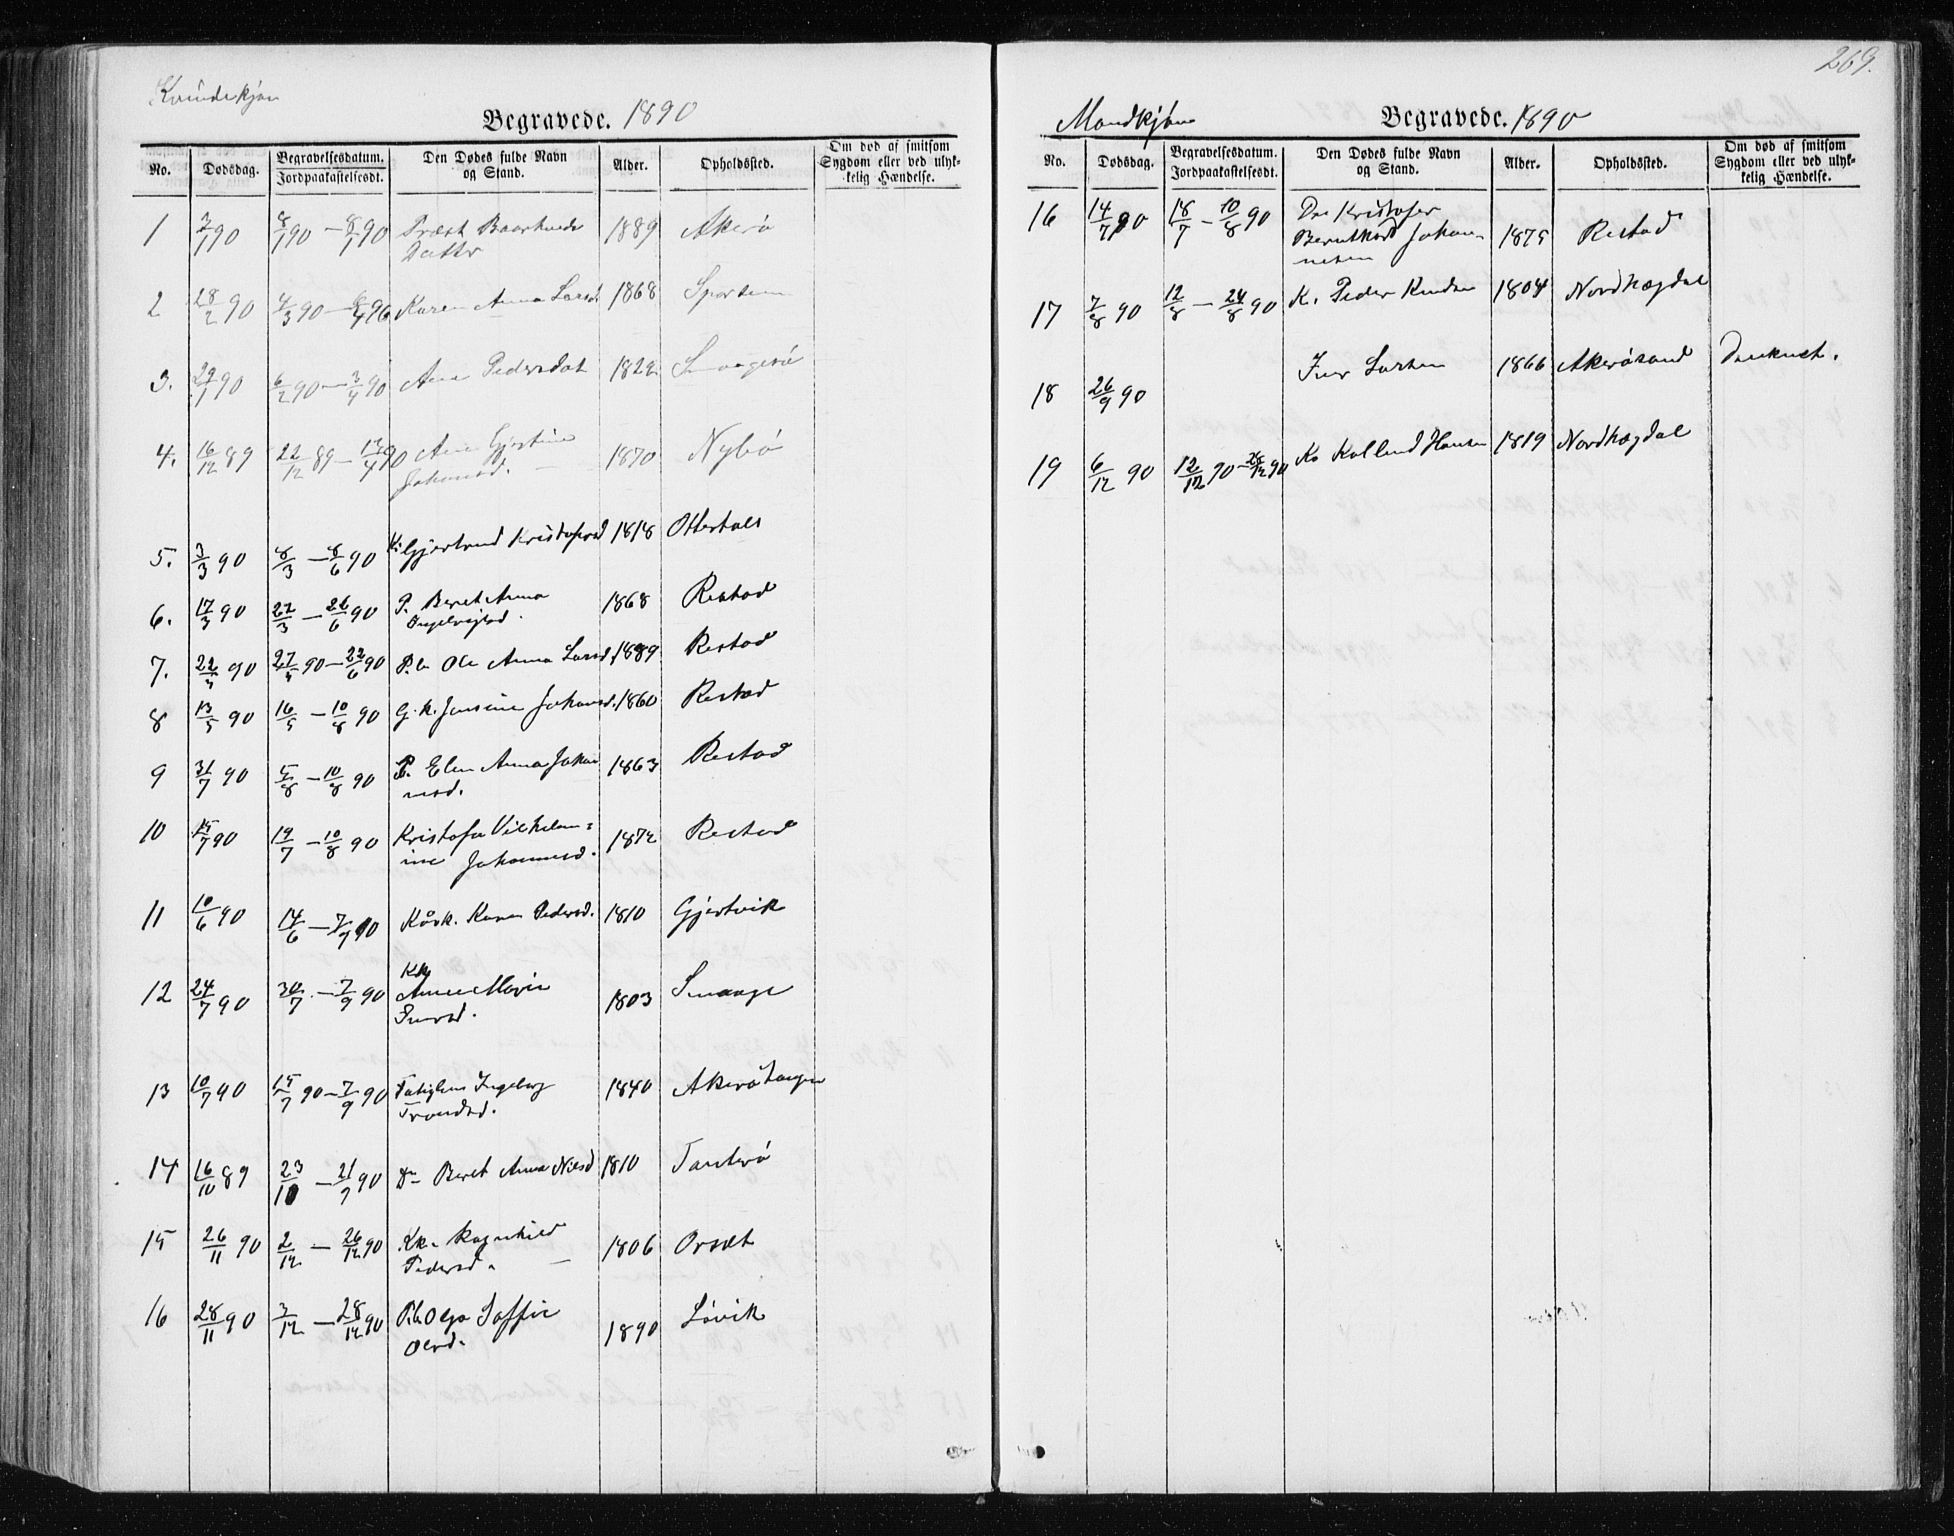 Kvindekjøn
Begravede. 1890
No. Dødsdag. Begravelsesdatum. Jordpaakastelsesdt. Den Dødes fulde Navn og Stand. Alder. Opholdssted. Om død af smitsom Sygdom eller ved ulykkelig Hændelse.
1 3/1 90 8/1 90 — 8/1 90 1889 Akerø
Datter
2 28/2 90 4/3 90 — Karen Anna Larsd. 1868
3. 29/1 90 6/2 90 — 3/4 90 Ane Pedersdat 1822 Smaagesø
4. 16/12 89 22/12 89 — 13/4 90 Ane Gjertine 1870 Nybø
Johansd.
5. 3/3 90 8/3 — 8/6 90 K. Gjertrud Kristofersd 1818
6. 17/3 90 22/3 — 26/6 90 P. Beret Anna 1868 Restad
Ingebrigtsd.
7. 22/4 90 27/4 90 — 22/6 90 P.b. Ole Anna Larsd. 1889 Restad
8 13/5 90 16/5 — 10/8 90 G.k. Jensine Johansd. 1860 Restad
9 31/7 90 5/8 — 10/8 90 P. Elen Anna Johan 1863 Restad
nesd.
10 15/7 90 19/7 — 10/8 90 Kristofa Vilhelm= 1872 Restad
ine Johannesd.
11 10/6 90 14/6 — 7/9 90 Karen Pedersd. 1810 Gjertvik
12 24/7 90 30/7 — 7/9 90 Kk Anne Marie 1803 Smaage
Iversd.
13 10/7 90 15/7 90 — 7/9 90 Fatiglem Ingeborg 1840 Akerøtangen
Trondsd.
14 16/10 89 23/10 — 21/9 90 Beret Anna Nilsd 1810 Tanterø
15 26/11 90 2/12 — 26/12 90 Kk. Ragnhild 1806 Orsæt
Pedersd.
16 28/11 90 3/12 — 28/12 90 P.b. Olga Saffie 1890 Løvik
Olsd.
269.
Mandkjøn
Begravede. 1890
No. Dødsdag. Begravelsesdatum. Jordpaakastelsesdt. Den Dødes fulde Navn og Stand. Alder. Opholdssted. Om død af smitsom Sygdom eller ved ulykkelig Hændelse.
16 14/7 90 18/7 — 10/8 90 Kristofer
Bernthard Johan- 1875 Restad
nesen
17 7/8 90 12/8 — 24/8 90 K. Peder Knudsen 1804 Nordhægdal
18 26/9 90 Iver Larsen 1866 Akerøsund Druknet.
19 6/12 90 12/12 90 — 28/12 90 K. Hansen 1819 Nordhægdal